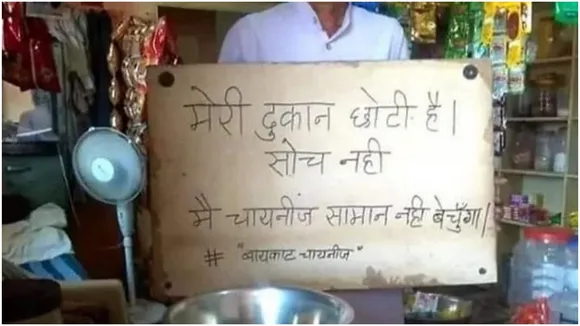 मेरी दुकान छोटी है।
सोच नही
मै चायनीज सामान नही बेचुँगा।
# "बायकाट चायनीज"